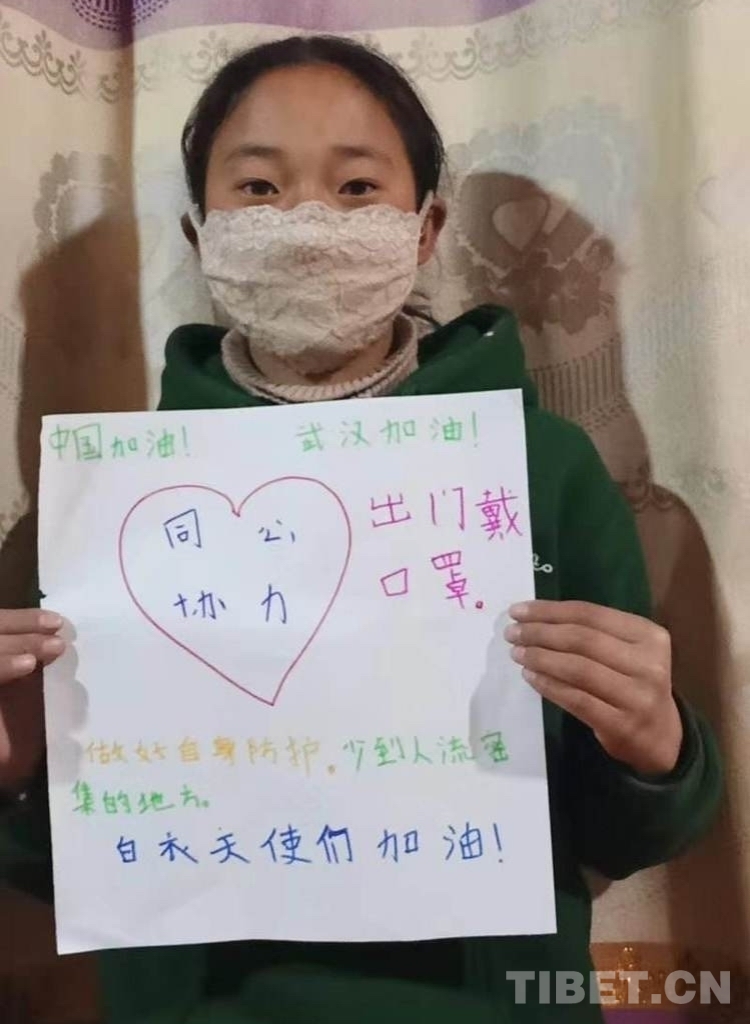 中国加油！ 武汉加油！
同心
协力
出门戴
口罩。
做好自身防护。少到人流密
集的地方。
白衣天使们加油！
TIBET.CN